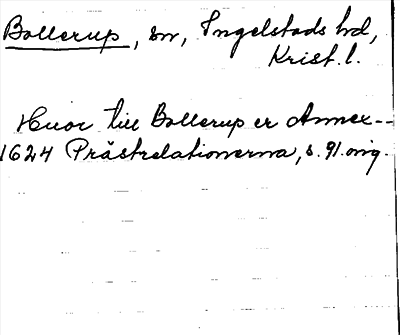 Bollerup, sn, Ingelstads hd,
Krist. l.
Huor till Bollerup er Annex--
1624 Prästrelationerna, s. 91. orig.